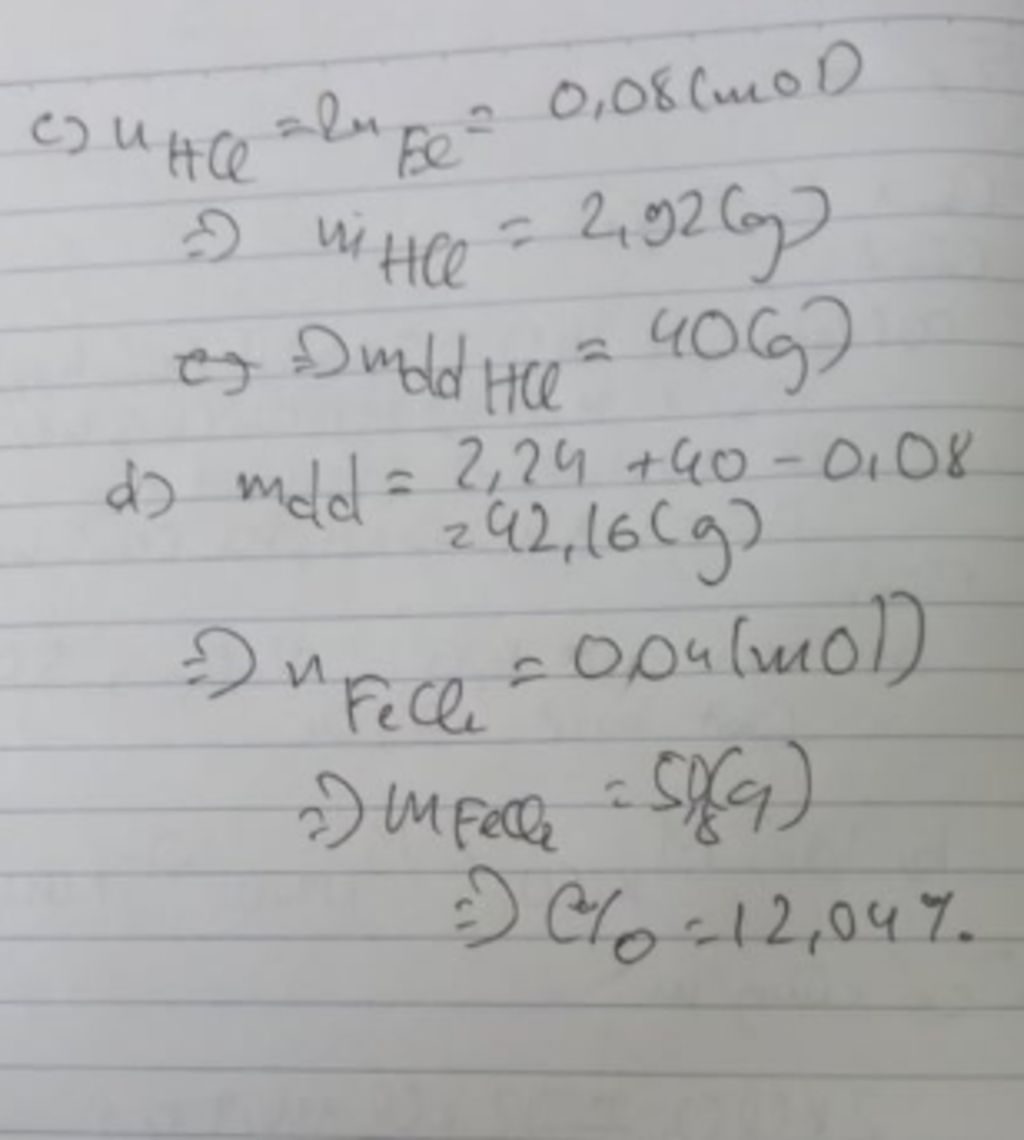 c) n HCl = 2n Fe = 0,08 (mol)
=> m HCl = 2,92 (g)
=> mdd HCl = 40 (g)
d) mdd = 2,24 + 40 - 0,08
= 42,16 (g)
=> n FeCl₂ = 0,04 (mol)
=> m FeCl₂ = (g)
=> C% = 12,04 %.